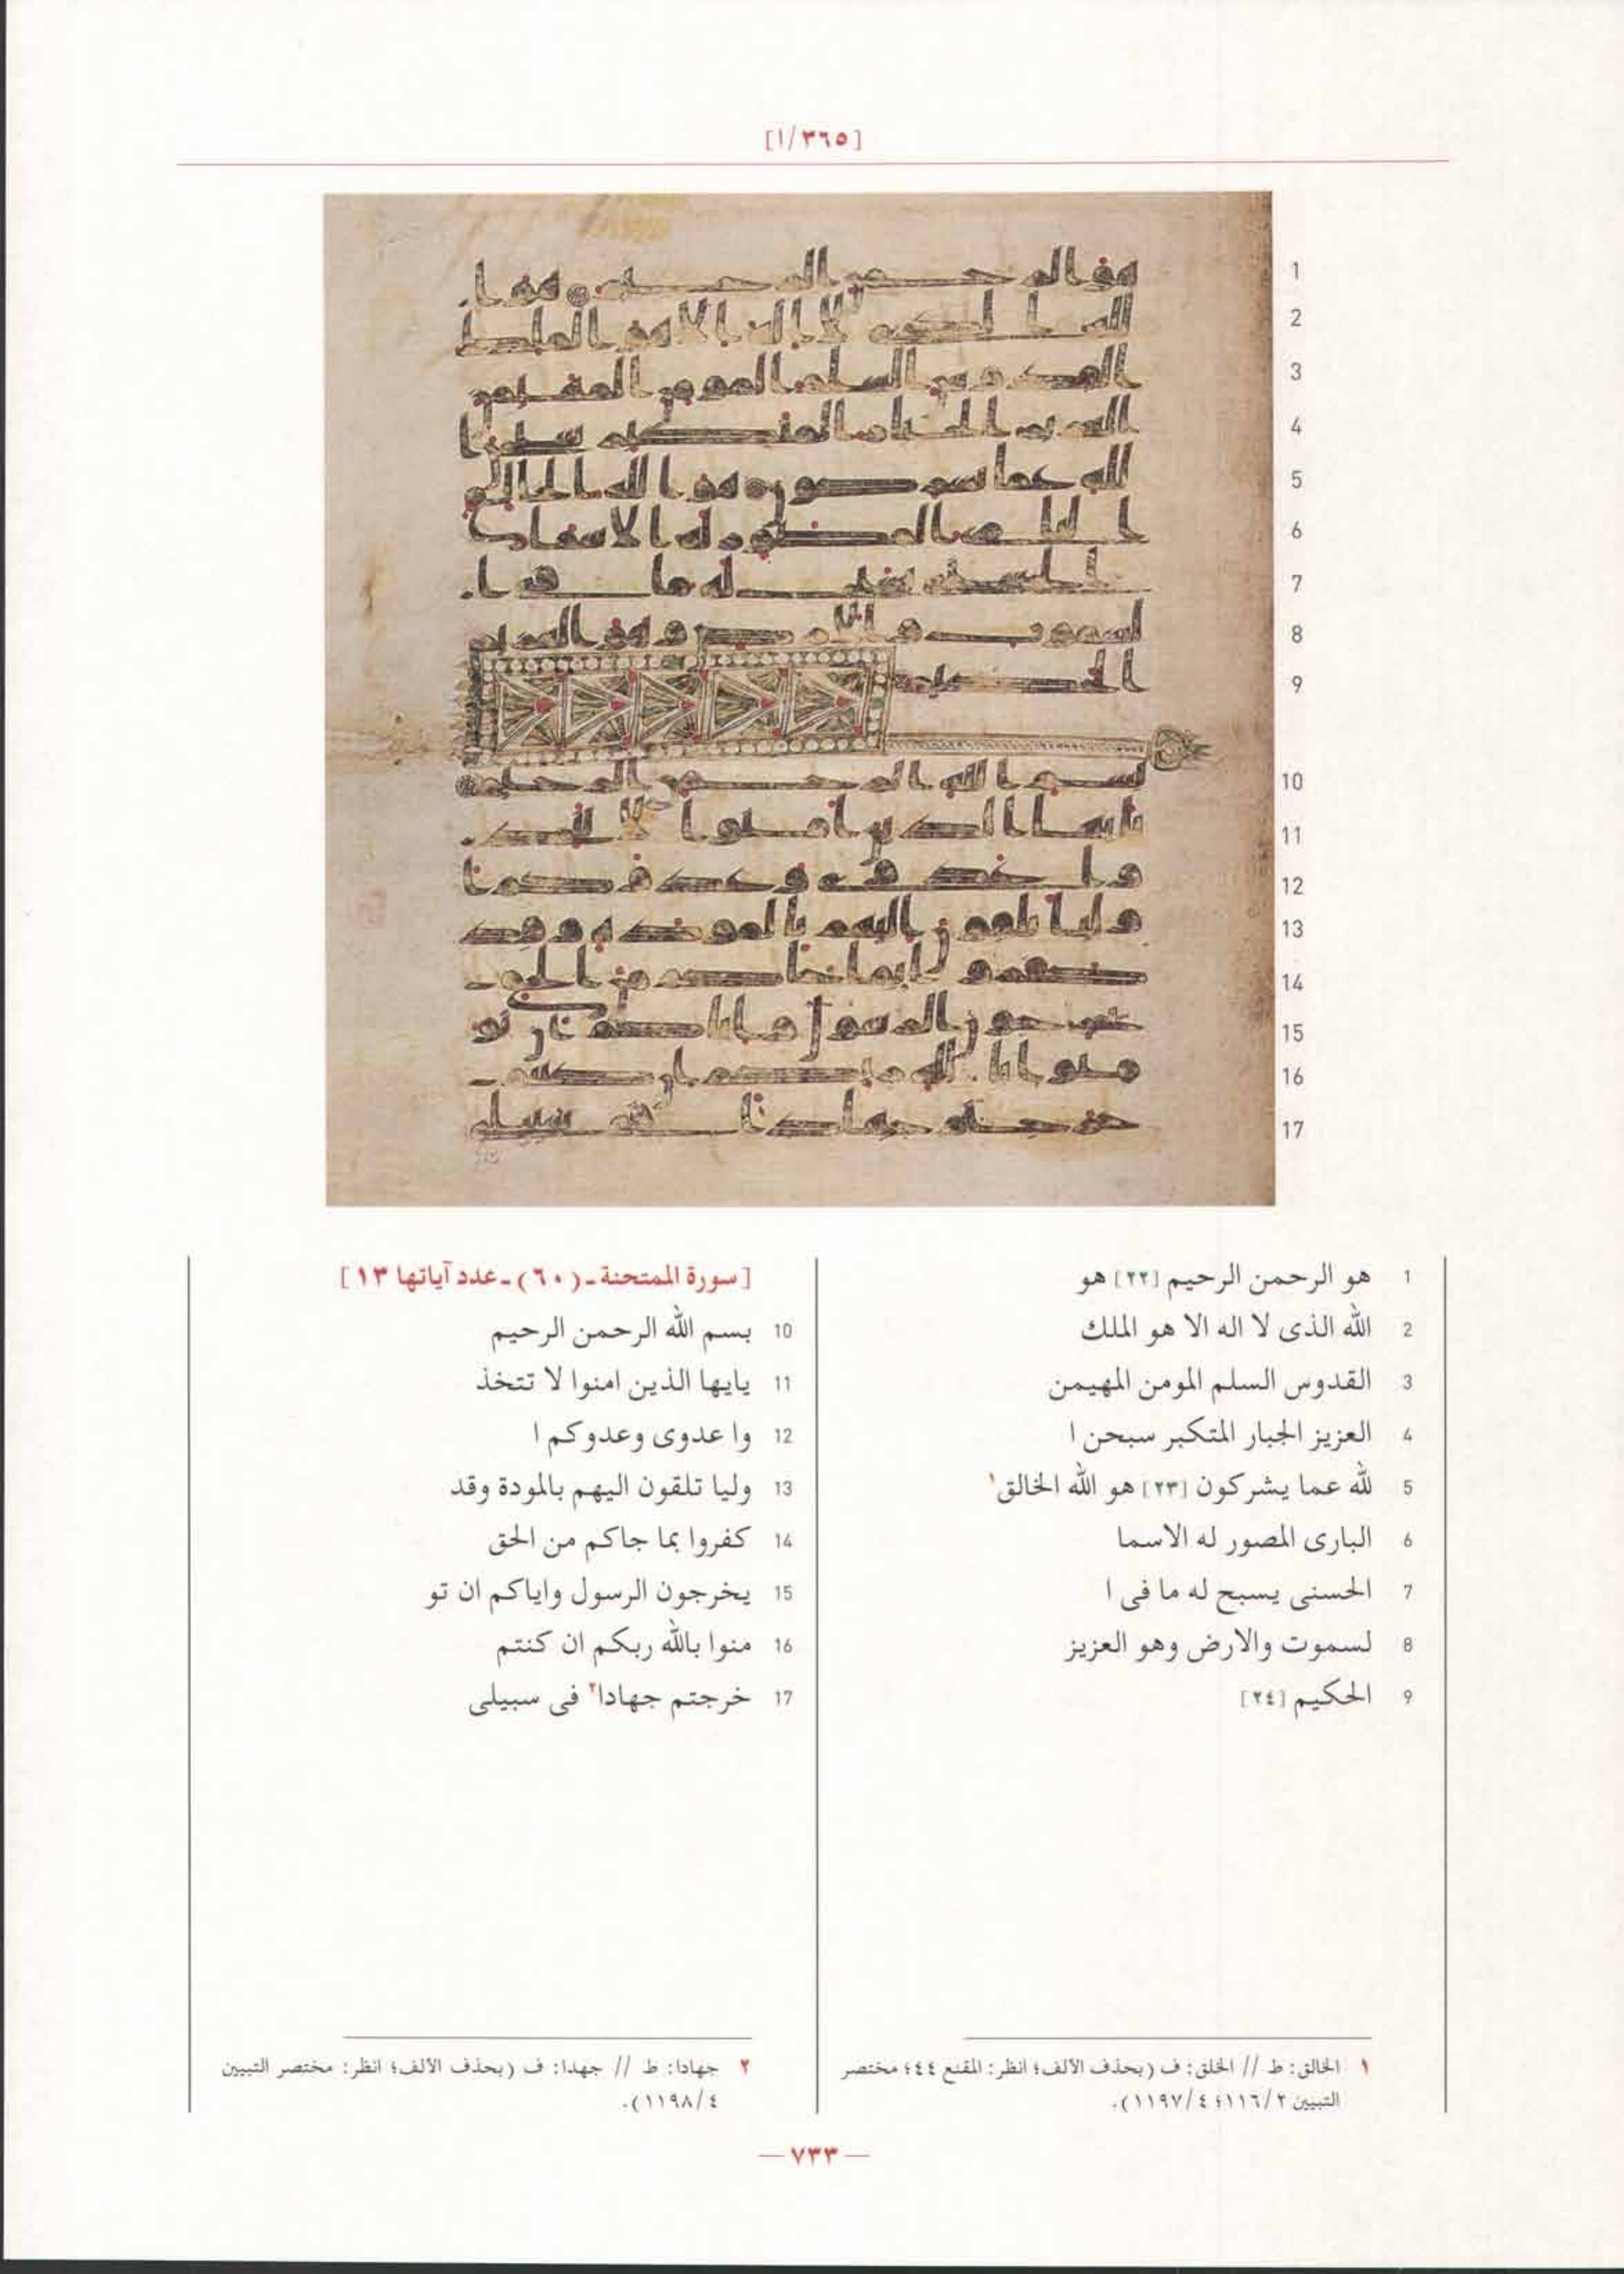 [١/٣٦٥]
1 هو الرحمن الرحيم [٢٢] هو
2 الله الذى لا اله الا هو الملك
3 القدوس السلم المومن المهيمن
4 العزيز الجبار المتكبر سبحن ا
5 لله عما يشركون [٢٣] هو الله الخالق١
6 البارى المصور له الاسما
7 الحسنى يسبح له ما فى ا
8 لسموت والارض وهو العزيز
9 الحكيم [٢٤]
[سورة الممتحنة ـ (٦٠) ـ عدد آياتها ١٣]
10 بسم الله الرحمن الرحيم
11 يايها الذين امنوا لا تتخذ
12 وا عدوى وعدوكم ا
13 وليا تلقون اليهم بالمودة وقد
14 كفروا بما جاكم من الحق
15 يخرجون الرسول واياكم ان تو
16 منوا بالله ربكم ان كنتم
17 خرجتم جهادا٢ فى سبيلى
١ الخالق: ط // الخلق: ف (بحذف الألف؛ انظر: المقنع ٤٤؛ مختصر
التبيين ١١٦/٢؛ ١١٩٧/٤).
٢ جهادا: ط // جهدا: ف (بحذف الألف؛ انظر: مختصر التبيين
١١٩٨/٤).
— ٧٣٣ —